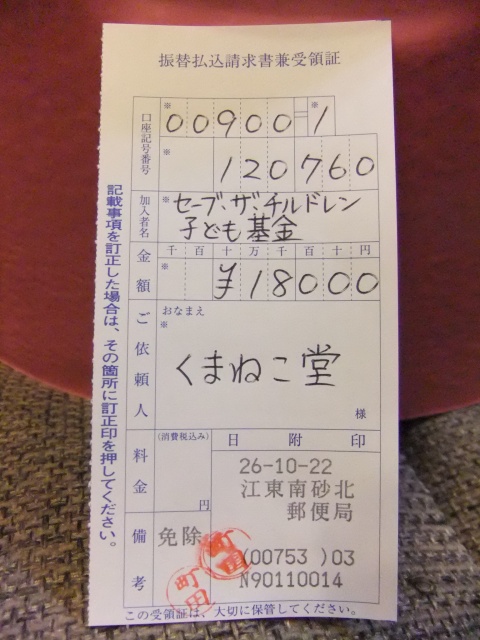 振替払込請求書兼受領証
口座記号番号
※ ※
00900=1
※
120760
加入者名
※ セーブ・ザ・チルドレン
子ども基金
金額
千百十万千百十円
※ ¥18000
ご依頼人
おなまえ
※
くまねこ堂
様
料金
(消費税込み)
円
日附印
26-10-22
江東南砂北
郵便局
備考
免除
町田
町田
(00753 )03
N90110014
記載事項を訂正した場合は、その箇所に訂正印を押してください。
この受領証は、大切に保管してください。